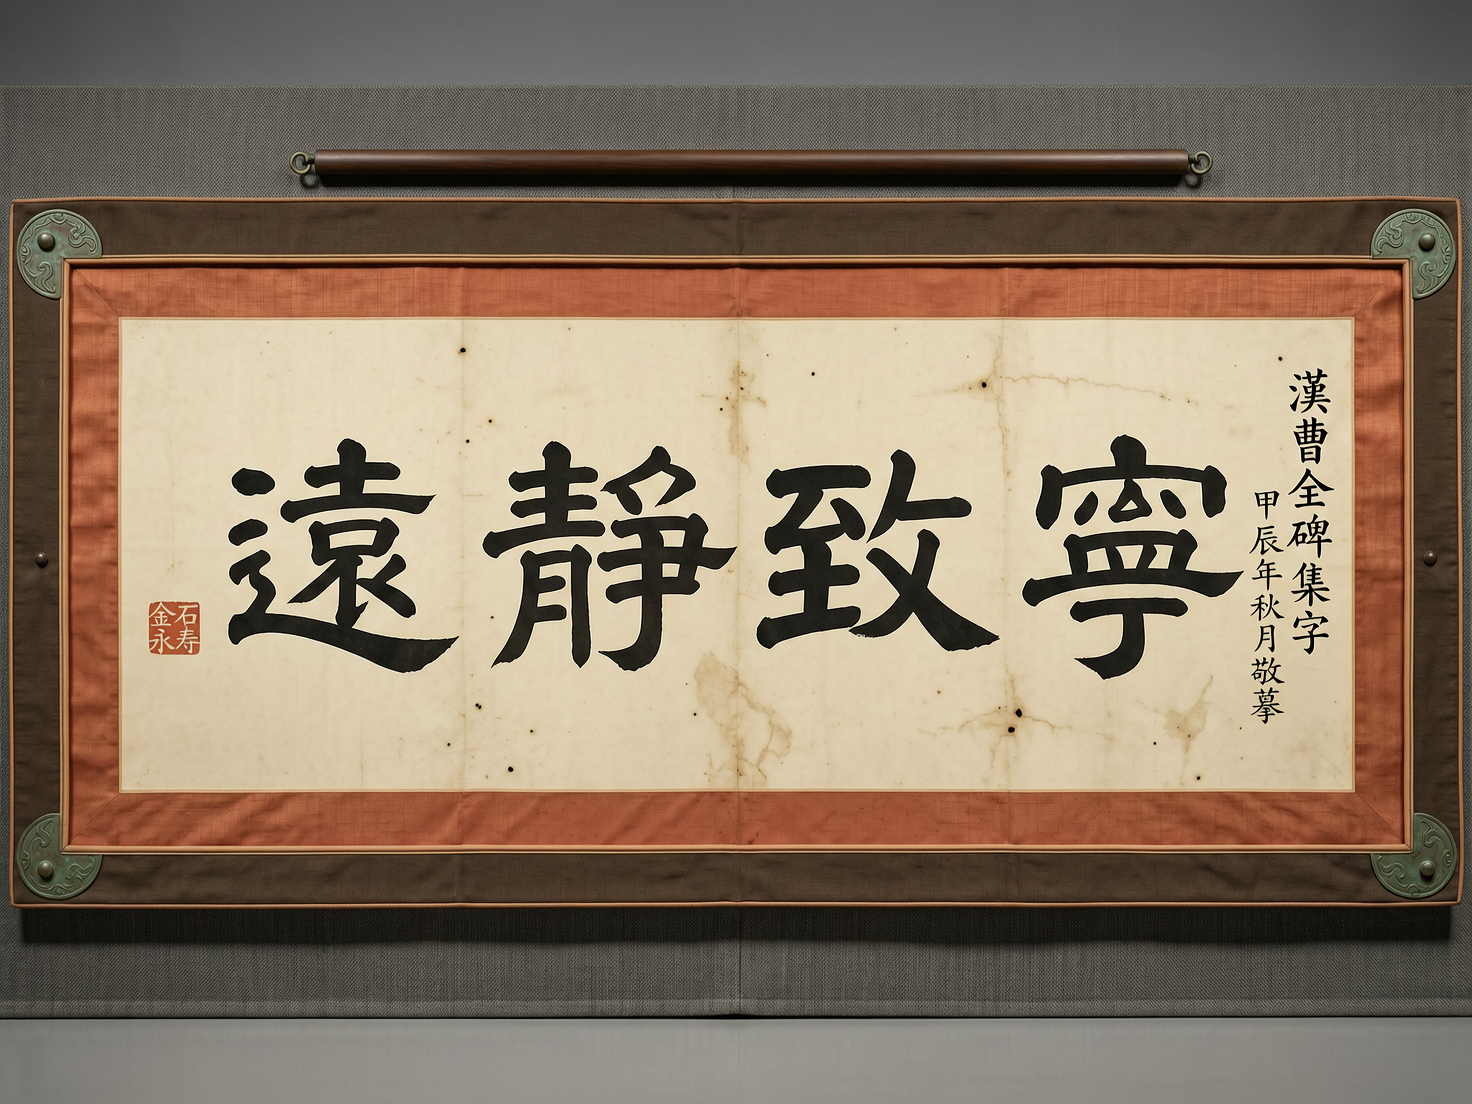 漢曹全碑集字
甲辰年秋月敬摹
寧致靜遠
石寿
金永